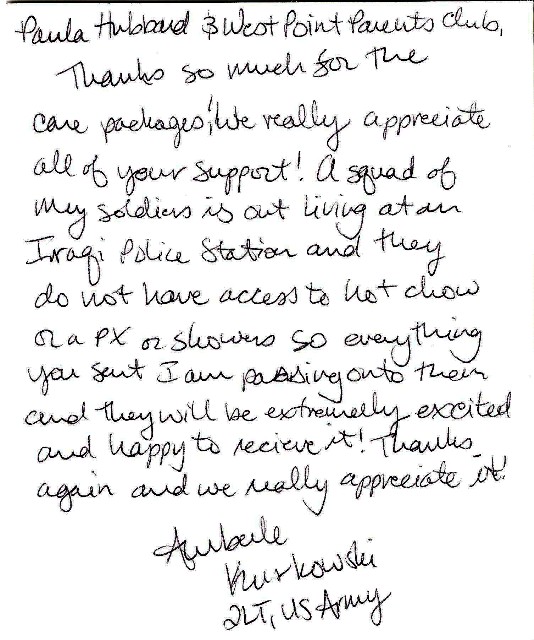 Paula Hubbard & West Point Parents Club,
Thanks so much for the
care packages! We really appreciate
all of your support! A squad of
my soldiers is out living at an
Iraqi Police Station and they
do not have access to hot chow
or a PX or showers so everything
you sent I am passing onto them
and they will be extremelly excited
and happy to recieve it! Thanks
again and we really appreciate it!
Kurkowski
2LT, US Army